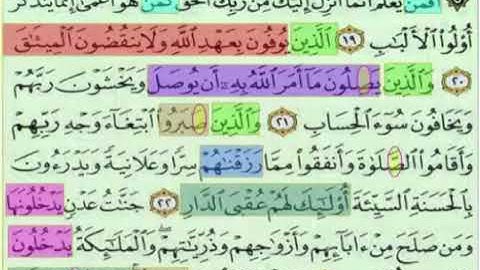 أَفَمَن يَعْلَمُ أَنَّمَآ أُنزِلَ إِلَيْكَ مِن رَّبِّكَ ٱلْحَقُّ كَمَنْ هُوَ أَعْمَىٰٓ إِنَّمَا يَتَذَكَّرُ
أُو۟لُوا۟ ٱلْأَلْبَٰبِ ١٩ ٱلَّذِينَ يُوفُونَ بِعَهْدِ ٱللَّهِ وَلَا يَنقُضُونَ ٱلْمِيثَٰقَ
٢٠ وَٱلَّذِينَ يَصِلُونَ مَآ أَمَرَ ٱللَّهُ بِهِۦٓ أَن يُوصَلَ وَيَخْشَوْنَ رَبَّهُمْ
وَيَخَافُونَ سُوٓءَ ٱلْحِسَابِ ٢١ وَٱلَّذِينَ صَبَرُوا۟ ٱبْتِغَآءَ وَجْهِ رَبِّهِمْ
وَأَقَامُوا۟ ٱلصَّلَوٰةَ وَأَنفَقُوا۟ مِمَّا رَزَقْنَٰهُمْ سِرًّا وَعَلَانِيَةً وَيَدْرَءُونَ
بِٱلْحَسَنَةِ ٱلسَّيِّئَةَ أُو۟لَٰٓئِكَ لَهُمْ عُقْبَى ٱلدَّارِ ٢٢ جَنَّٰتُ عَدْنٍ يَدْخُلُونَهَا
وَمَن صَلَحَ مِنْ ءَابَآئِهِمْ وَأَزْوَٰجِهِمْ وَذُرِّيَّٰتِهِمْ وَٱلْمَلَٰٓئِكَةُ يَدْخُلُونَ